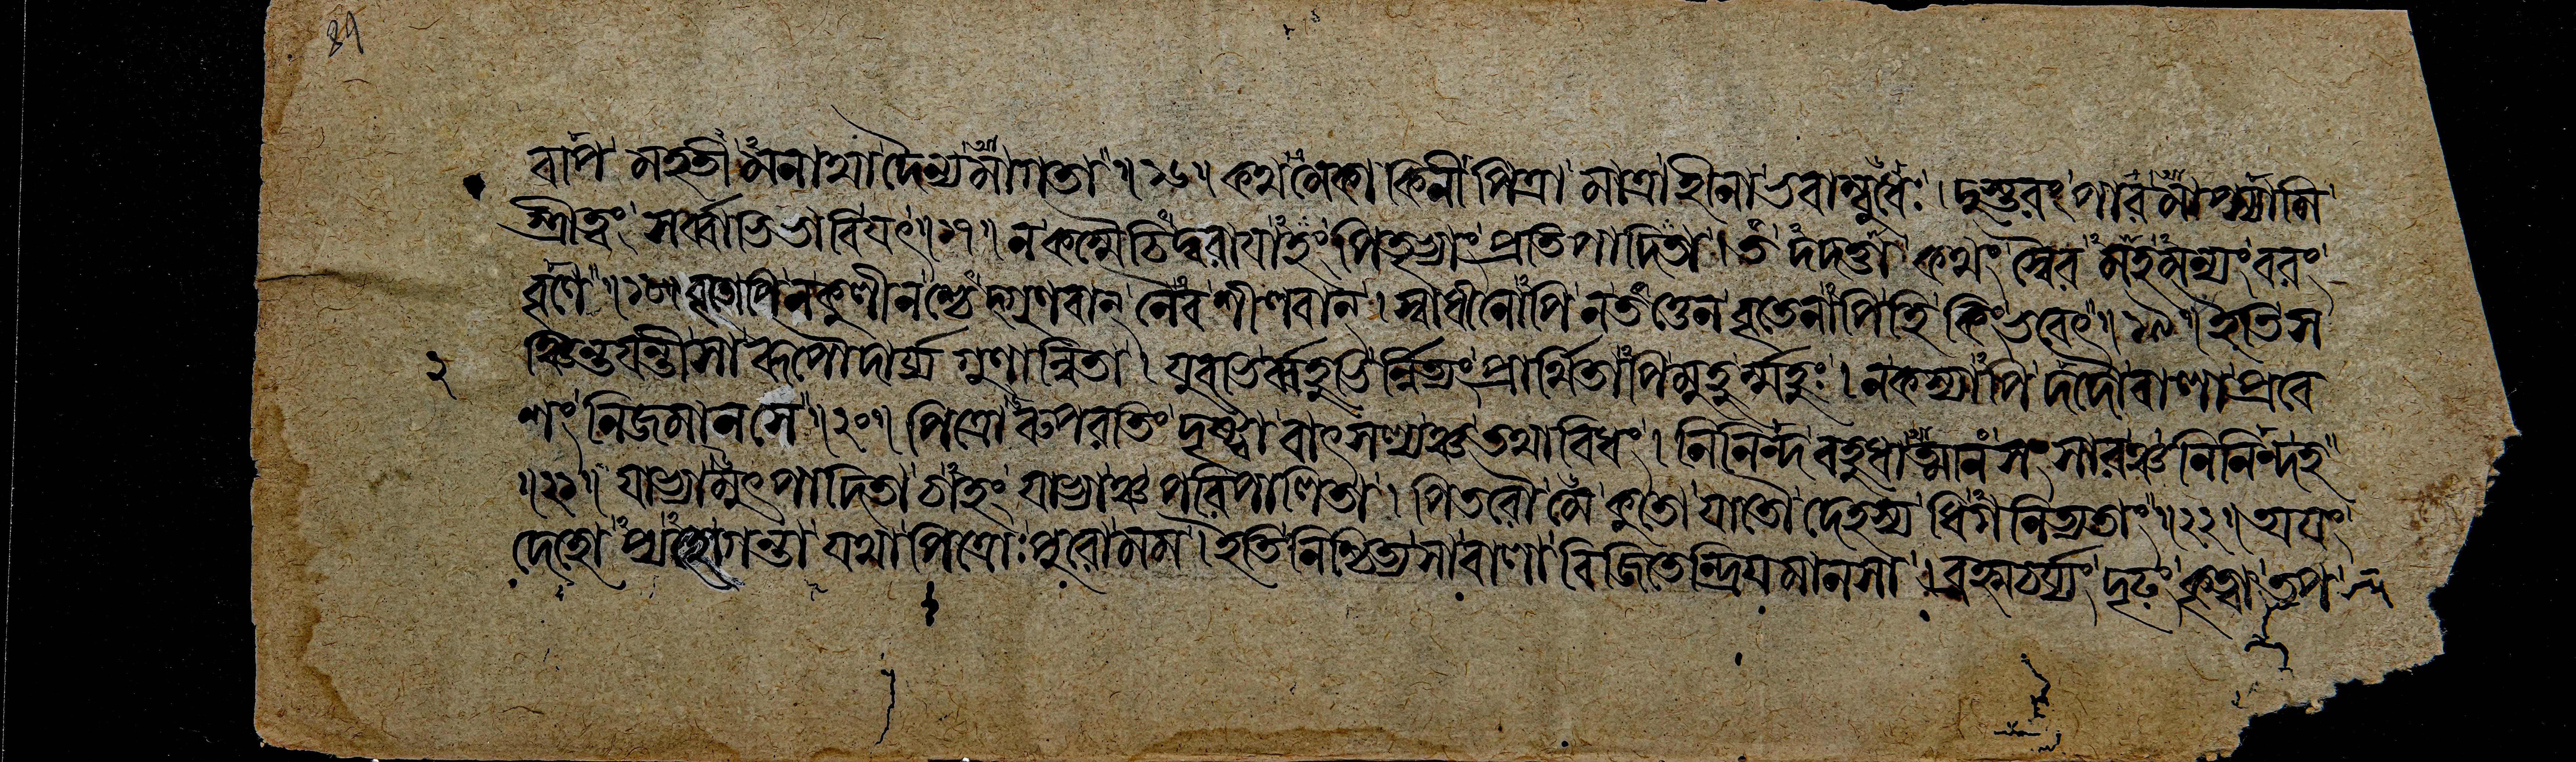 34
বাপ মহতীমনাথা দৈন্যমাগতা ॥ ১৬ ॥ কথমেকাকিনী পিত্রা মাত্রা হীনা ভবাম্বুধেঃ । দুস্তরং পারমাপ্স্যামি
স্ত্রীত্বং সর্ব্বাভিভাবি যৎ ॥ ১৭ ॥ ন কস্মৈচিদ্বরাযাহং পিতৃভ্যাং প্রতিপাদিতা । তদদত্তা কথং স্বৈরমহমন্যং বরং
বৃণে ॥ ১৮ ॥ বৃতোপি ন কুলীনশ্চেদ্গুণবান্ নৈব শীলবান্ । স্বাধীনোপি ন তত্তেন বৃতেনাপি হি কিং ভবেৎ ॥ ১৯ ॥ ইতি স
ঞ্চিন্তযন্তী সা রূপৌদার্য্যগুণান্বিতা । যুবভির্ব্বহুভির্ন্নিত্যং প্রার্থিতাপি মুহুর্ম্মহুঃ । ন কস্যাপি দদৌ বালা প্রবে
২
শং নিজমানসে ॥ ২০ ॥ পিত্রোরুপরতিং দৃষ্ট্বা বাৎসল্যঞ্চ তথাবিধং । নিনিন্দ বহুধাত্মানং সংসারঞ্চ নিনিন্দ হ
॥ ২১ ॥ যাভ্যামুৎপাদিতা চাহং যাভ্যাঞ্চ পরিপালিতা । পিতরৌ মে কুতো যাতৌ দেহস্য ধিগনিত্যতাং ॥ ২২ ॥ অযং
দেহোপ্যহো গন্তা যথা পিত্রোঃ পুরো মম । ইতি নিশ্চিত্য সা বালা বিজিতেন্দ্রিযমানসা । ব্রহ্মচর্য্যং দৃঢং কৃত্বা তপ